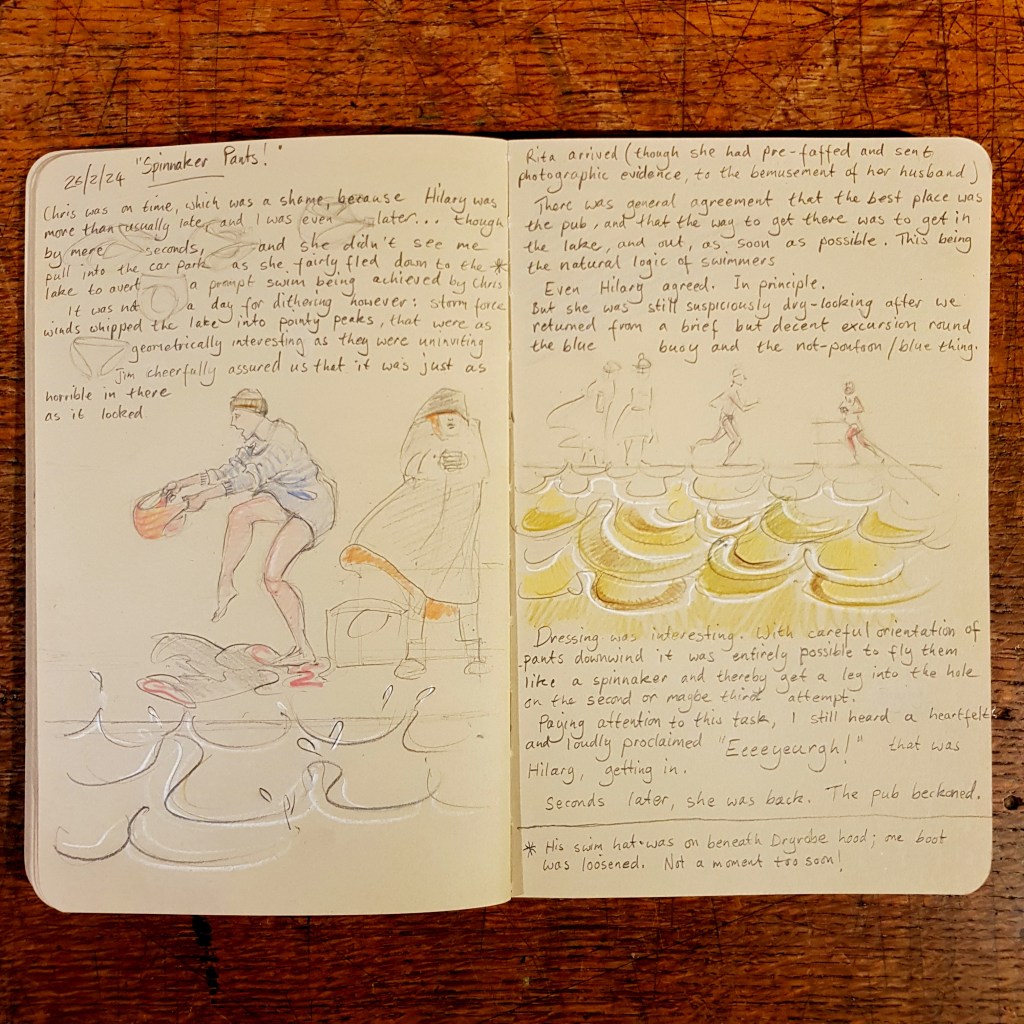 "Spinnaker Pants!"
26/2/24
Chris was on time, which was a shame, because Hilary was
more than usually late, and I was even later... though
by mere seconds, and she didn't see me
pull into the car park as she fairly fled down to the *
lake to avert a prompt swim being achieved by Chris
It was not a day for dithering however: storm force
winds whipped the lake into pointy peaks, that were as
geometrically interesting as they were uninviting
Jim cheerfully assured us that it was just as
horrible in there
as it looked.
Rita arrived (though she had pre-faffed and sent
photographic evidence, to the bemusement of her husband)
There was general agreement that the best place was
the pub, and that the way to get there was to get in
the lake, and out, as soon as possible. This being
the natural logic of swimmers
Even Hilary agreed. In principle.
But she was still suspiciously dry-looking after we
returned from a brief but decent excursion round
the blue buoy and the not-pontoon/blue thing.
Dressing was interesting. With careful orientation of
pants downwind it was entirely possible to fly them
like a spinnaker and thereby get a leg into the hole
on the second or maybe third attempt.
Paying attention to this task, I still heard a heartfelt
and loudly proclaimed "Eeeeyeurgh!" that was
Hilary, getting in.
Seconds later, she was back. The pub beckoned.
* His swim hat was on beneath Dryrobe hood; one boot
was loosened. Not a moment too soon!